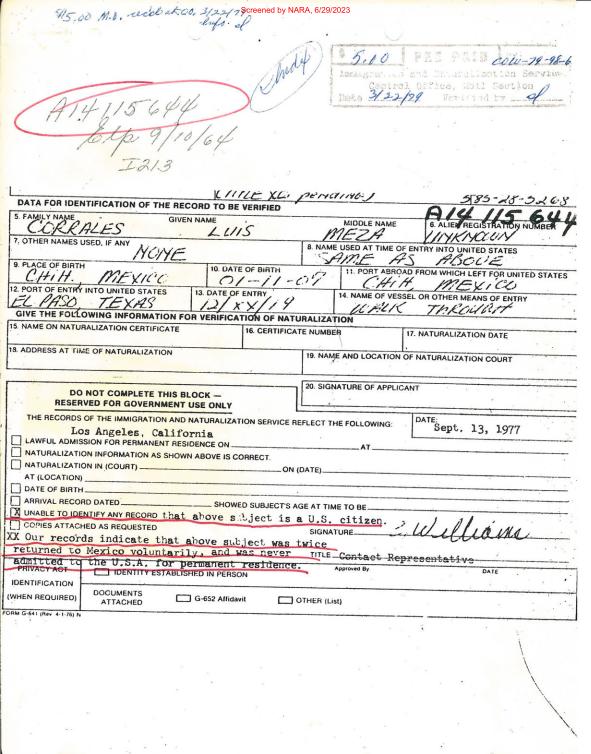 $15.00 M.O. recd at CO, 3/22/79
Screened by NARA, 6/29/2023
$ 5.00 FEE PAID COW-79-98-6
Immigration and Naturalization Service
Control Office, Mail Section
Date 3/22/79 Verified by
A14115644
Elp 9/10/64
I213
(TITLE XX. pending)
585-28-5268
DATA FOR IDENTIFICATION OF THE RECORD TO BE VERIFIED
A14 115 644
5. FAMILY NAME GIVEN NAME MIDDLE NAME 6. ALIEN REGISTRATION NUMBER
CORRALES LUIS MEZA UNKNOWN
7. OTHER NAMES USED, IF ANY 8. NAME USED AT TIME OF ENTRY INTO UNITED STATES
NONE SAME AS ABOVE
9. PLACE OF BIRTH 10. DATE OF BIRTH 11. PORT ABROAD FROM WHICH LEFT FOR UNITED STATES
CHIH. MEXICO 01-11-07 CHIH MEXICO
12. PORT OF ENTRY INTO UNITED STATES 13. DATE OF ENTRY 14. NAME OF VESSEL OR OTHER MEANS OF ENTRY
EL PASO TEXAS 12/XX/19 WALK THROUGH
GIVE THE FOLLOWING INFORMATION FOR VERIFICATION OF NATURALIZATION
15. NAME ON NATURALIZATION CERTIFICATE 16. CERTIFICATE NUMBER 17. NATURALIZATION DATE
18. ADDRESS AT TIME OF NATURALIZATION 19. NAME AND LOCATION OF NATURALIZATION COURT
20. SIGNATURE OF APPLICANT
DO NOT COMPLETE THIS BLOCK —
RESERVED FOR GOVERNMENT USE ONLY
THE RECORDS OF THE IMMIGRATION AND NATURALIZATION SERVICE REFLECT THE FOLLOWING: DATE:
Los Angeles, California Sept. 13, 1977
LAWFUL ADMISSION FOR PERMANENT RESIDENCE ON AT
NATURALIZATION INFORMATION AS SHOWN ABOVE IS CORRECT.
NATURALIZATION IN (COURT) ON (DATE)
AT (LOCATION)
DATE OF BIRTH
ARRIVAL RECORD DATED SHOWED SUBJECT'S AGE AT TIME TO BE
X UNABLE TO IDENTIFY ANY RECORD that above subject is a U.S. citizen.
COPIES ATTACHED AS REQUESTED SIGNATURE Williams
XX Our records indicate that above subject was twice
returned to Mexico voluntarily, and was never TITLE Contact Representative
admitted to the U.S.A. for permanent residence. Approved By DATE
PRIVACY ACT IDENTITY ESTABLISHED IN PERSON
IDENTIFICATION
(WHEN REQUIRED) DOCUMENTS ATTACHED G-652 Affidavit OTHER (List)
FORM G-641 (Rev. 4-1-76) N